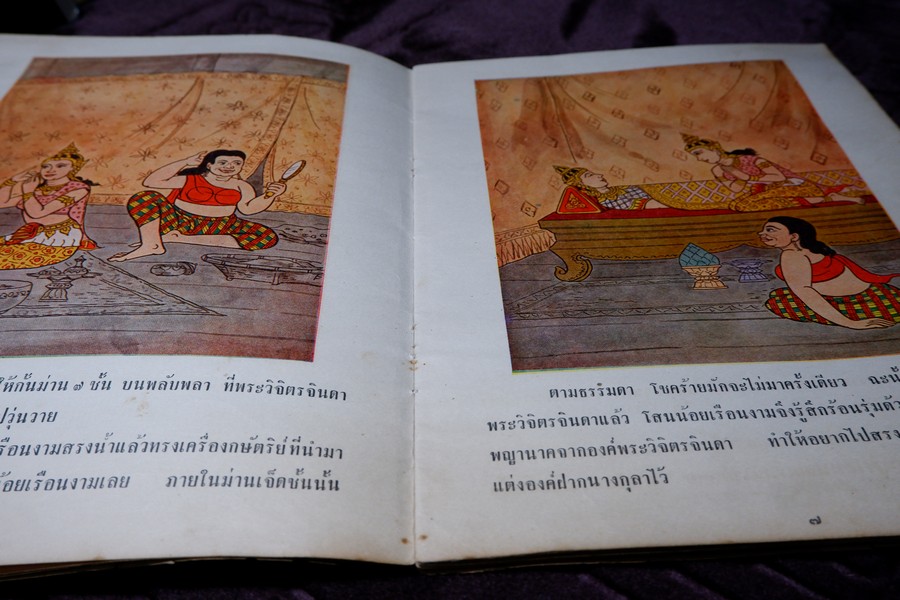 ให้กั้นม่าน ๗ ชั้น บนพลับพลา ที่พระวิจิตรจินดา
วุ่นวาย
เรือนงามสรงน้ำแล้วทรงเครื่องกษัตริย์ที่นำมา
น้อยเรือนงามเลย ภายในม่านเจ็ดชั้นนั้น
ตามธรรมดา โชคร้ายมักจะไม่มาครั้งเดียว ฉะนั้
พระวิจิตรจินดาแล้ว โสนน้อยเรือนงามจึงรู้สึกร้อนรุ่มด้ว
พญานาคจากองค์พระวิจิตรจินดา ทำให้อยากไปสรง
แต่งองค์ฝากนางกุลาไว้
๗